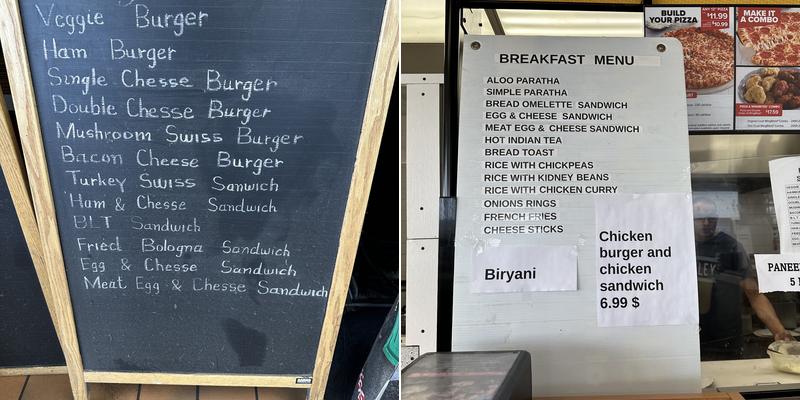 Veggie Burger
Ham Burger
Single Chesse Burger
Double Chesse Burger
Mushroom Swiss Burger
Bacon Cheese Burger
Turkey Swiss Sanwich
Ham & Chesse Sandwich
BLT Sandwich
Fried Bologna Sandwich
Egg & Chesse Sandwich
Meat Egg & Chesse Sandwich
BREAKFAST MENU
ALOO PARATHA
SIMPLE PARATHA
BREAD OMELETTE SANDWICH
EGG & CHEESE SANDWICH
MEAT EGG & CHEESE SANDWICH
HOT INDIAN TEA
BREAD TOAST
RICE WITH CHICKPEAS
RICE WITH KIDNEY BEANS
RICE WITH CHICKEN CURRY
ONIONS RINGS
FRENCH FRIES
CHEESE STICKS
Biryani
Chicken
burger and
chicken
sandwich
6.99 $
BUILD
YOUR PIZZA
ANY 12" PIZZA
$11.99
$10.99
MAKE IT
A COMBO
$17.59
LEY
PANEE
5